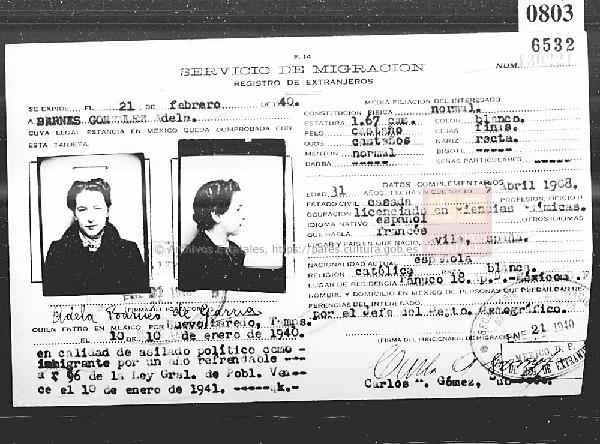 0803
6532
F.14
SERVICIO DE MIGRACION
REGISTRO DE EXTRANJEROS
NUM.
SE EXPIDE EL 21 DE febrero DE 1940.
A Adela.
CUYA LEGAL ESTANCIA EN MEXICO QUEDA COMPROBADA CON
ESTA TARJETA.
MEDIA FILIACION DEL INTERESADO
CONSTITUCION FISICA normal.
ESTATURA 1.67 cms. COLOR blanco.
PELO castaño CEJAS finas.
OJOS castaños NARIZ recta.
MENTON normal BIGOTE -----
BARBA ----- SEÑAS PARTICULARES -----
DATOS COMPLEMENTARIOS
EDAD 31 AÑOS, FECHA EN QUE NACIO abril 1908.
ESTADO CIVIL casada PROFESION, OFICIO U
OCUPACION licenciado en ciencias químicas.
IDIOMA NATIVO español OTROS IDIOMAS
QUE HABLA. francés
LUGAR Y PAIS EN QUE NACIO
NACIONALIDAD ACTUAL española
RELIGION católica blanca.
LUGAR DE RESIDENCIA 18.
NOMBRE Y DOMICILIO EN MEXICO DE PERSONAS QUE PUEDAN DAR RE-
FERENCIAS DEL INTERESADO.
por el Jefe del Depto. Demográfico.
© Archivos Estatales, https://pares.cultura.gob.es
Adela de García
QUIEN ENTRO EN MEXICO POR Nuevo Laredo, Tamps.
EL 10 DE enero de 1940.
en calidad de asilado político como
inmigrante por un año refrendable ----
96 de la Ley Gral. de Pobl. Ven-
ce el 10 de enero de 1941.
(FIRMA DEL FUNCIONARIO DE MIGRACION)
ENE 21 1940
Carlos Gómez,